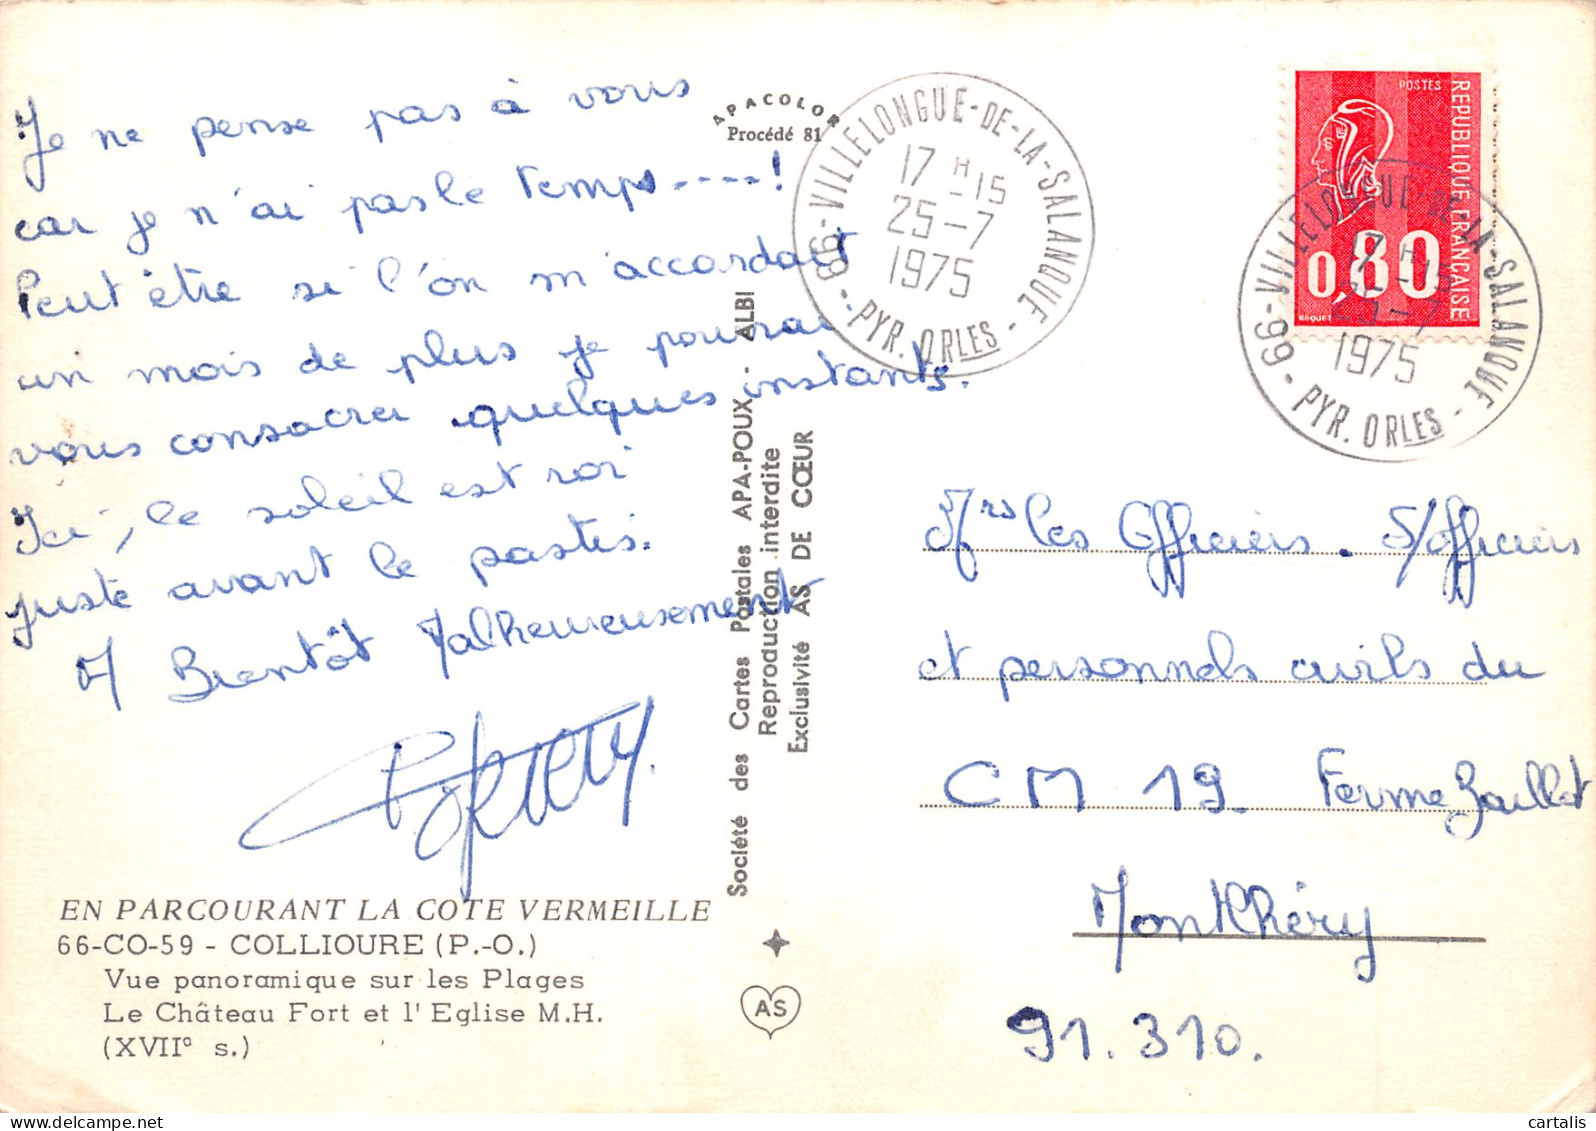 Je ne pense pas à vous
car je n'ai pas le temps----!
Peut être si l'on m'accordait
un mois de plus je pourrai
vous consacrer quelques instants.
Ici, le soleil est roi
juste avant le pastis.
A Bientôt Malheureusement
EN PARCOURANT LA COTE VERMEILLE
66-CO-59 - COLLIOURE (P.-O.)
Vue panoramique sur les Plages
Le Château Fort et l'Eglise M.H.
(XVII° s.)
APACOLOR
Procédé 81
Société des Cartes Postales APA-POUX - ALBI
Reproduction interdite
Exclusivité AS DE CŒUR
AS
66-VILLELONGUE-DE-LA-SALANQUE
17 H-15
25-7
1975
PYR. ORLES
POSTES
REPUBLIQUE FRANÇAISE
0,80
BEQUET
66-VILLELONGUE-DE-LA-SALANQUE
17 H-15
25-7
1975
PYR. ORLES
Mrs les Officiers. S/officiers
et personnels civils du
CM 19 Ferme Gaillot
Montlhéry
91.310.
cartalis
delcampe.net